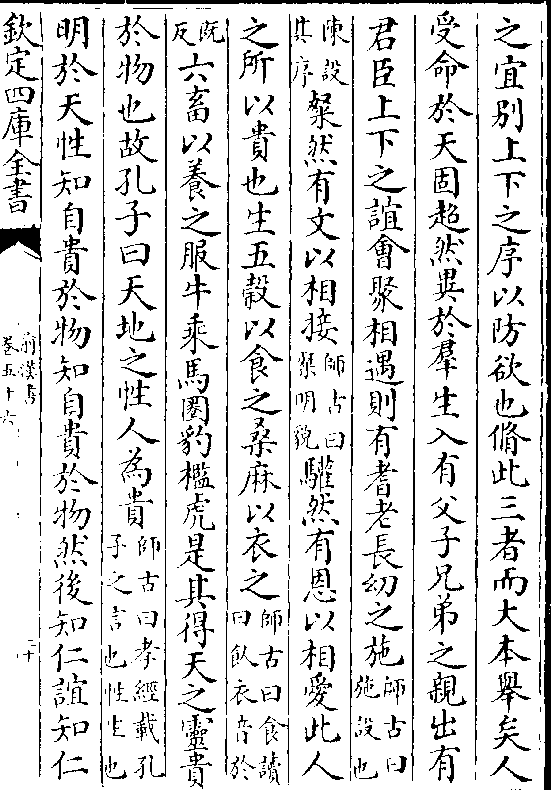 之宜别上下之序以防欲也脩此三者而大本舉矣人
受命於天固超然異於羣生入有父子兄弟之親出有
君臣上下之誼會聚相遇則有耆老長幼之施師古曰施設也
陳設其序粲然有文以相接師古曰粲明貌驩然有恩以相愛此人
之所以貴也生五穀以食之桑麻以衣之師古曰食讀曰飤衣音於
既反六畜以養之服牛乘馬圈豹檻虎是其得天之靈貴
於物也故孔子曰天地之性人為貴師古曰孝經載孔子之言也性生也
明於天性知自貴於物知自貴於物然後知仁誼知仁
欽定四庫全書
前漢書
卷五十六
二十